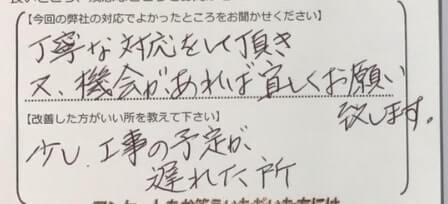 【今回の弊社の対応でよかったところをお聞かせください】
丁寧な対応をして頂き
又、機会があれば宜しくお願い
致します。
【改善した方がいい所を教えて下さい】
少し、工事の予定が
遅れた所